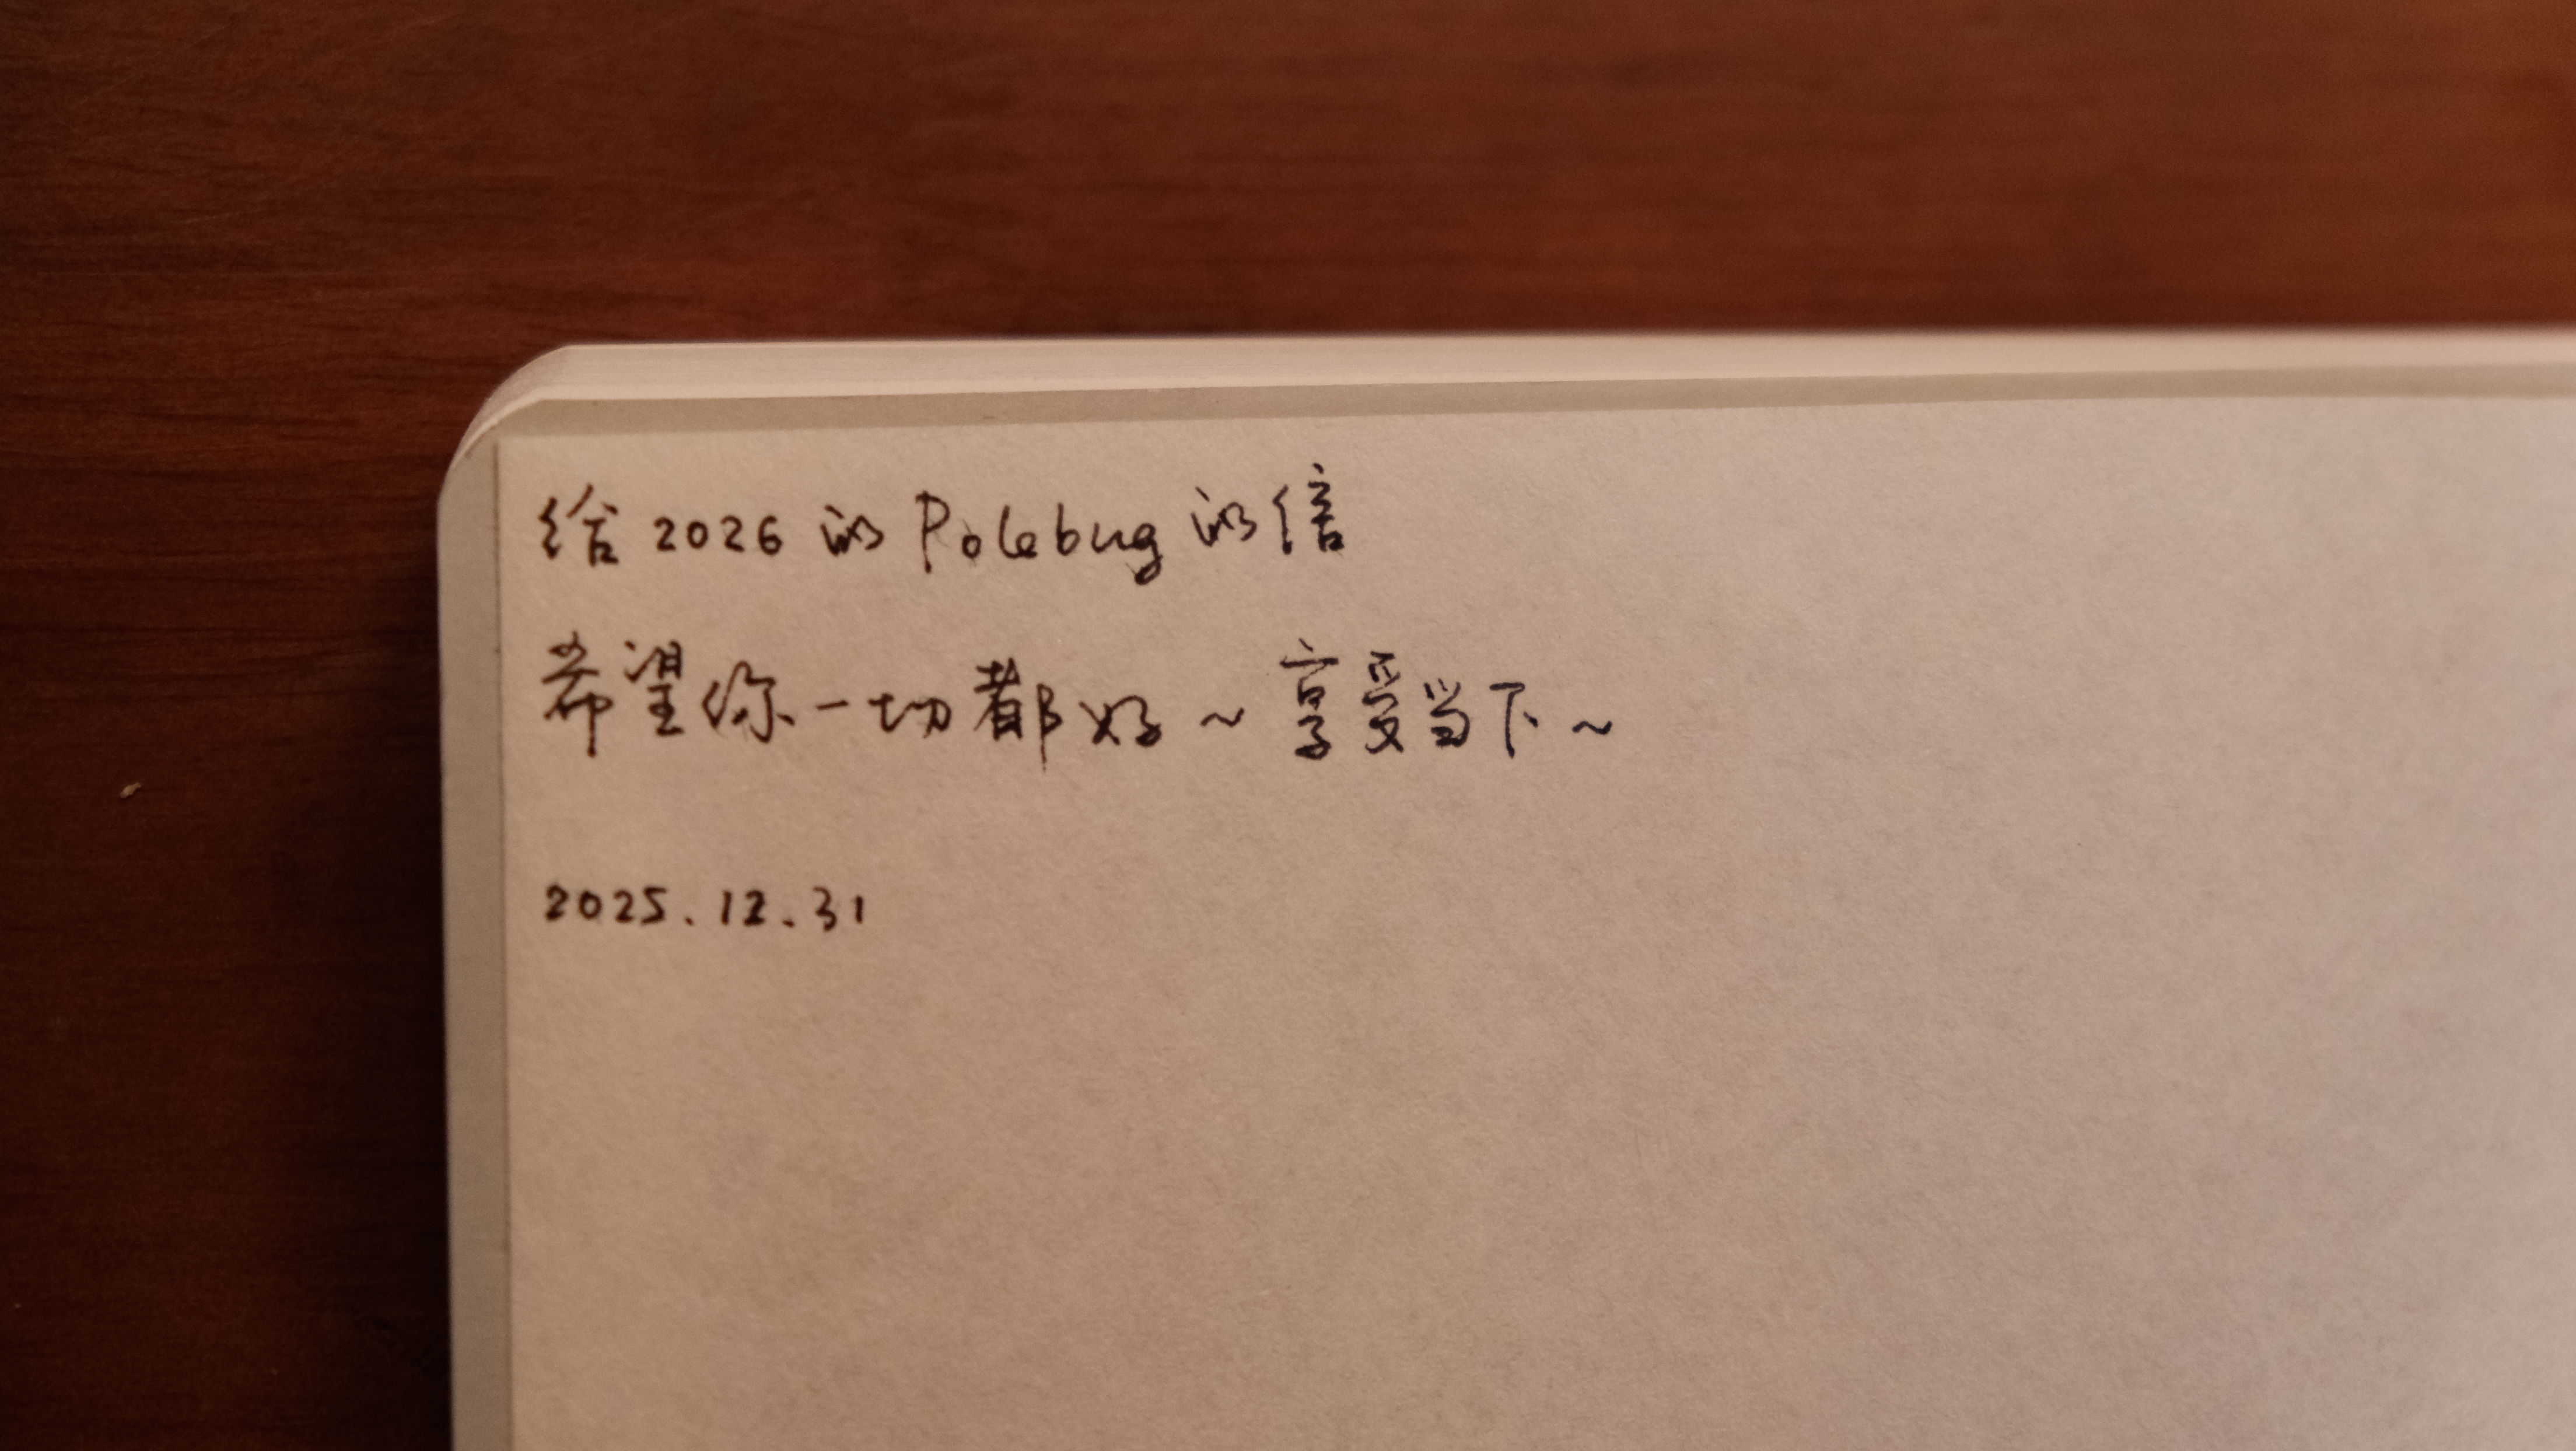 给2026的Polebug的信
希望你一切都好~享受当下~
2025.12.31